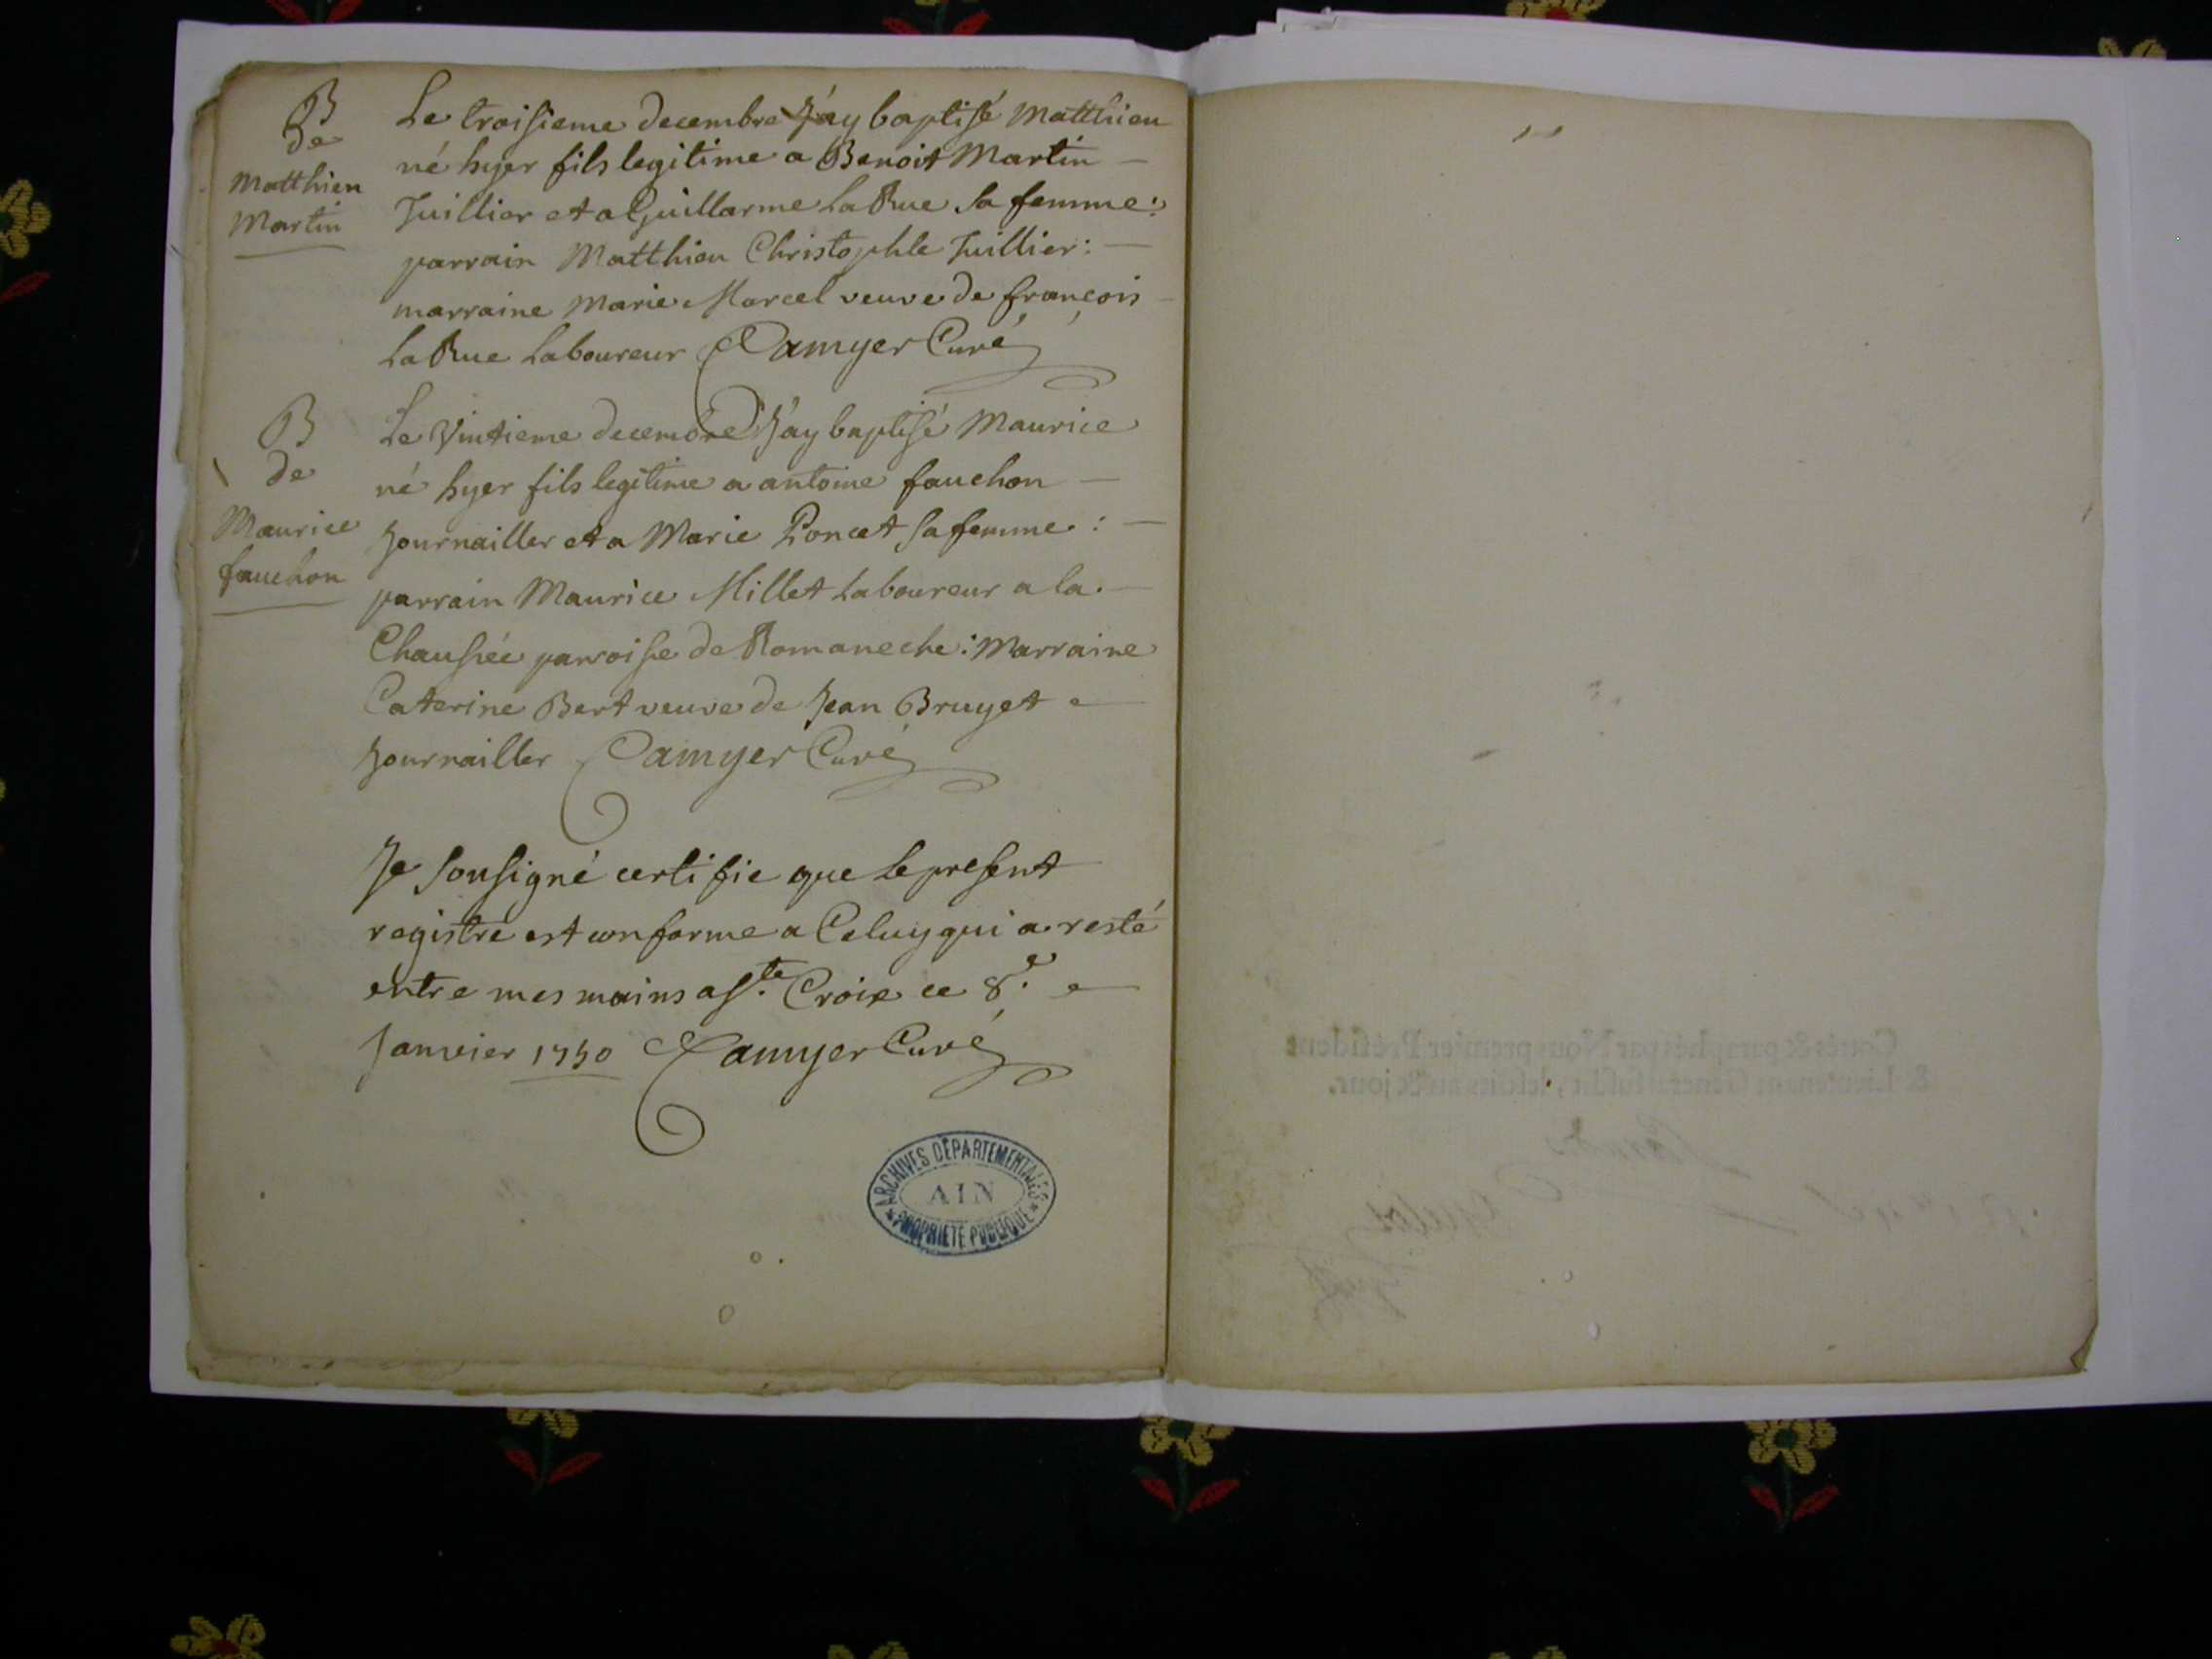 B
de
Matthieu
Martin
Le troisieme decembre J'ay baptisé Matthieu
né hyer fils legitime a Benoit Martin
Tuillier et a Guillarme La Rue sa femme:
parrain Matthieu Christophle Tuillier:
marraine Marie Marcel veuve de françois
La Rue Laboureur Camyer Curé
B
de
Maurice
fauchon
Le Vintieme decembre J'ay baptisé Maurice
né hyer fils legitime a antoine fauchon
Journailler et a Marie Poncet sa femme:
parrain Maurice Millet Laboureur a la
Chaussée parroisse de Romaneche: Marraine
Caterine Bert veuve de Jean Bruyet
Journailler Camyer Curé
Je sousigné certifie que le present
registre est conforme a Celuy qui a resté
entre mes mains a Ste. Croix ce 8e.
Janvier 1750 Camyer Curé
ARCHIVES DÉPARTEMENTALES
AIN
PROPRIÉTÉ PUBLIQUE
Cottés & paraphés par Nous premier Président
& Lieutenant Général susdit, lesdits an & jour.